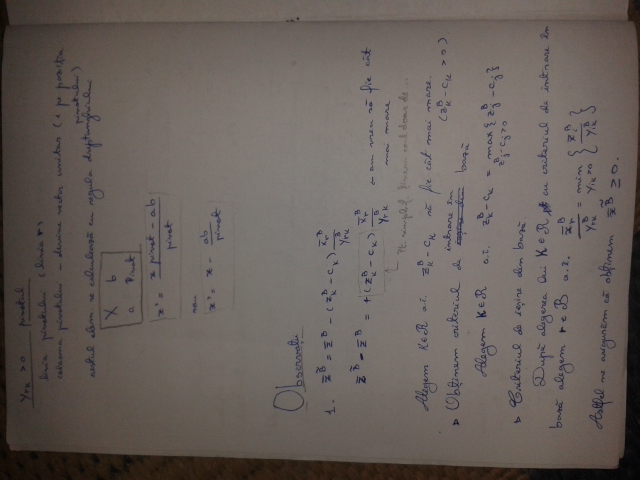 Yrk > 0 pivotul
linia pivotului (linia r)
coloana pivotului - devine vector unitar (1 pe poziția pivotului)
restul elem. se calculează cu regula dreptunghiului
X b
a pivot
x' = x pivot - ab / pivot
sau
x' = x - ab / pivot
Observații
1. z̃^B = z^B - (zk^B - ck) xr^B / Yrk^B
z^B - z̃^B = (zk^B - ck) xr^B / Yrk^B să fie cât mai mare
Alegem k∈R a.î. zk^B - ck să fie cât mai mare.
(zk^B - ck > 0)
▹ Obținem criteriul de intrare în bază
Alegem k∈R a.î. zk^B - ck = max {zj^B - cj}
zj^B - cj > 0
▹ Criteriul de ieșire din bază
După alegerea lui k∈R cu criteriul de intrare în
bază alegem r∈B a.î. xr^B / Yrk^B = min { xi^B / Yik^B }
Yik > 0
Astfel ne asigurăm că obținem x̃^B ≥ 0.